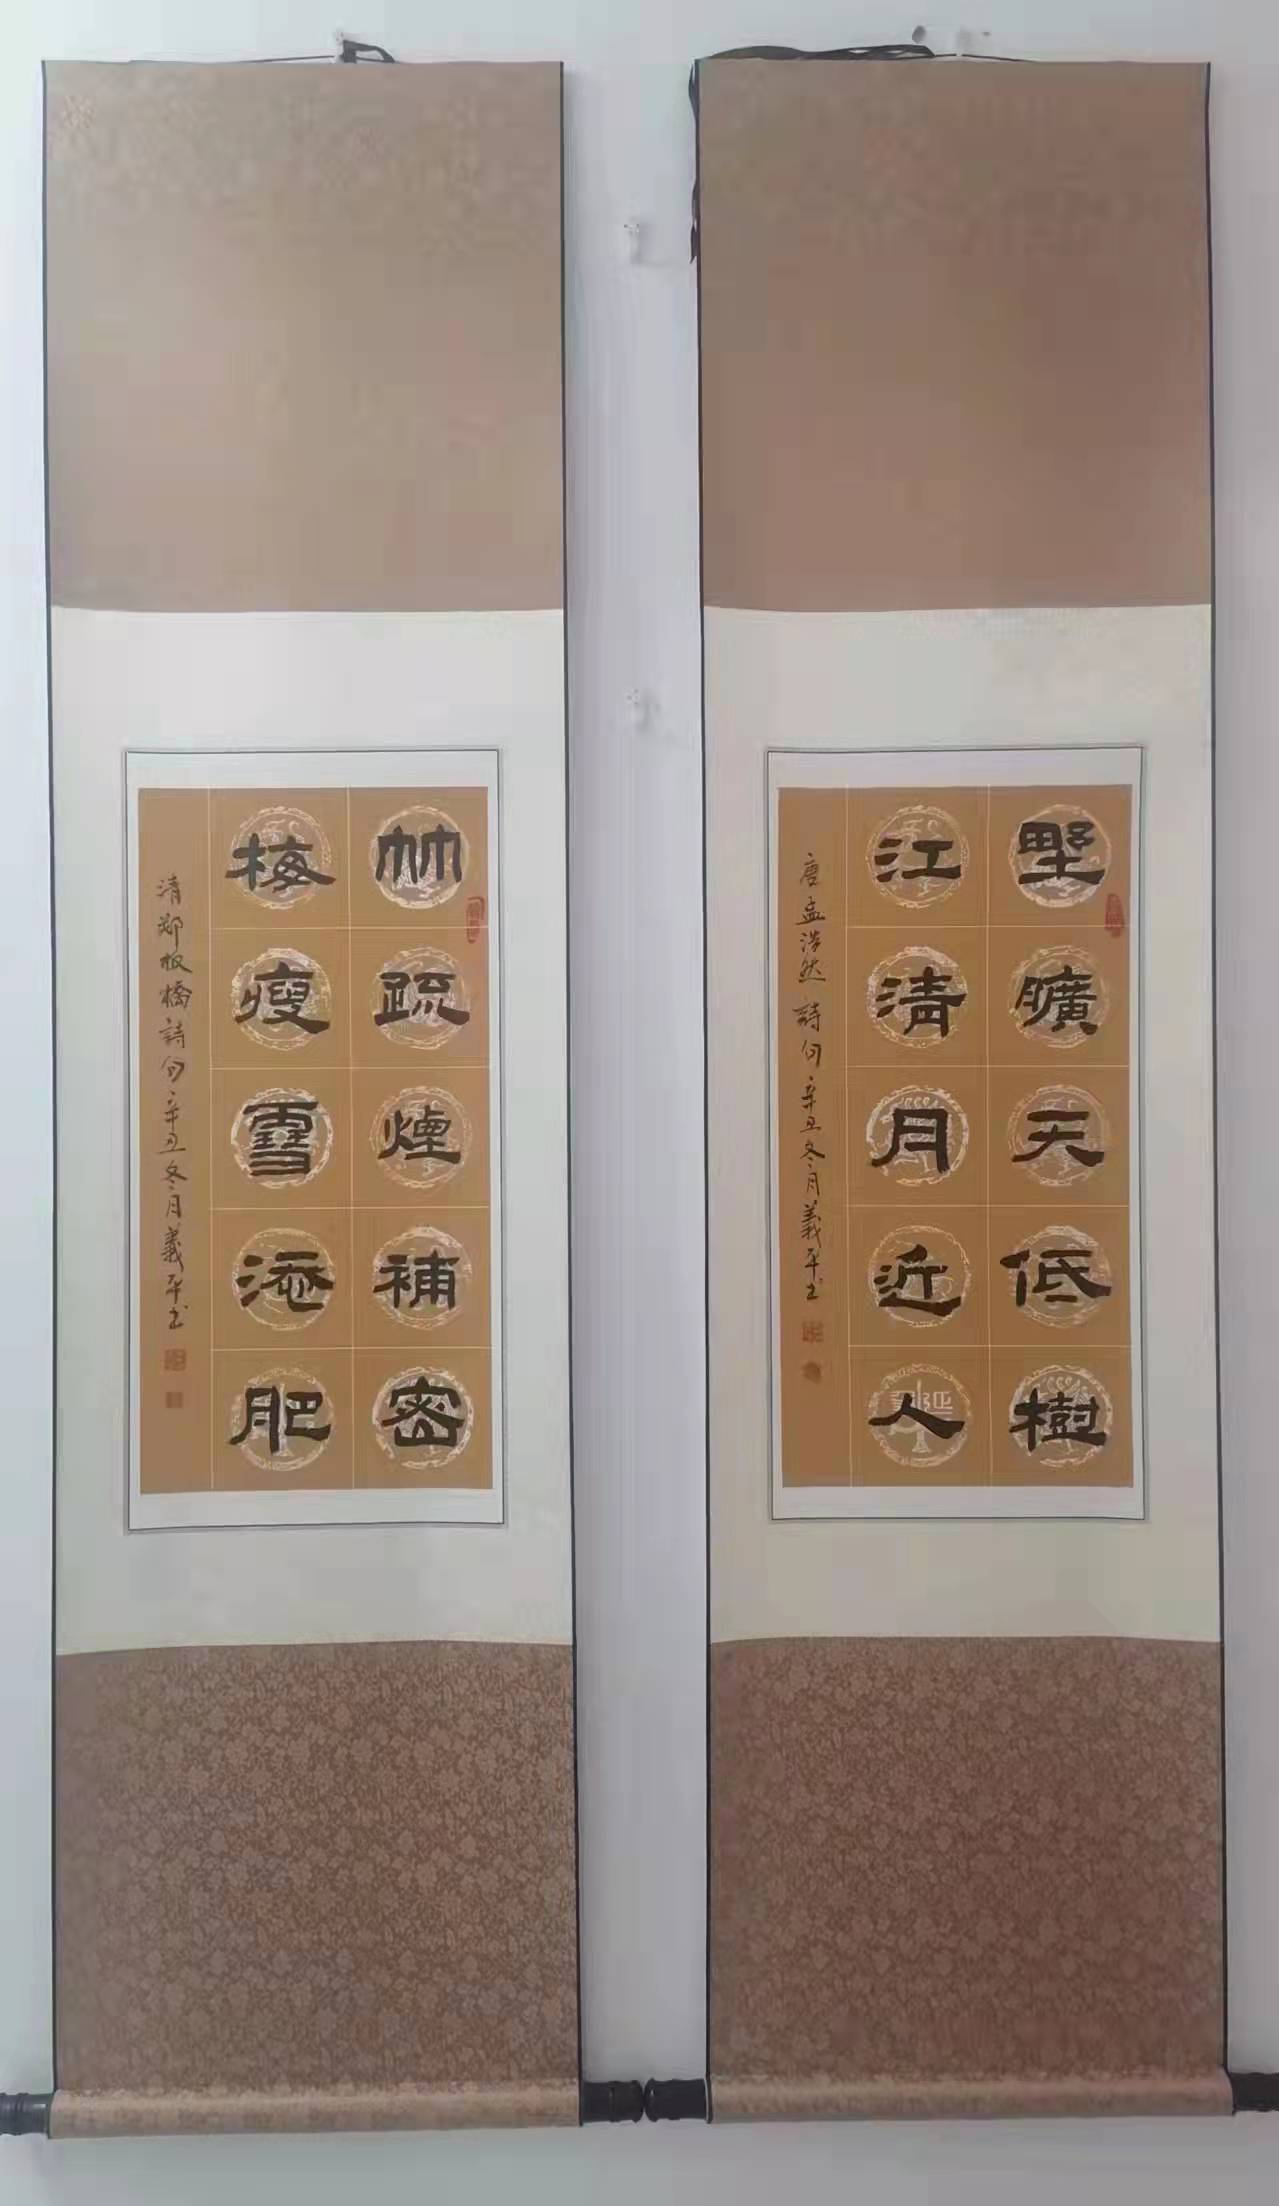 野曠天低樹
江清月近人
唐孟浩然詩句辛丑冬月義平书
竹疏煙補密
梅瘦雪添肥
清郑板橋詩句辛丑冬月義平书